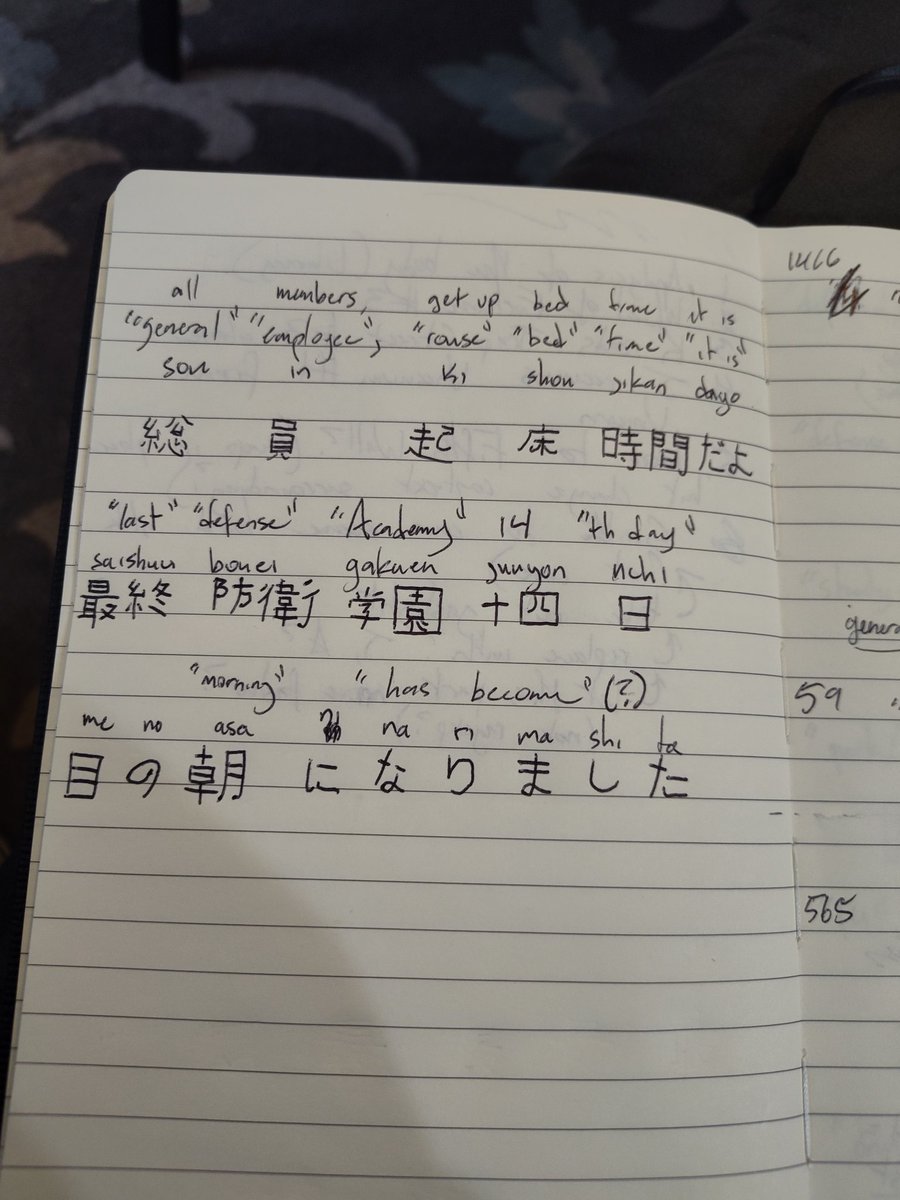 all members, get up bed time it is
"general" "employee", "rouse" "bed" "time" "it is"
sou in ki shou jikan dayo
総 員 起 床 時間だよ
"last" "defense" "Academy" 14 "th day"
saishuu bouei gakuen juuyon nichi
最終 防衛 学園 十四 日
"morning" "has become" (?)
me no asa na ri ma shi ta
目 の 朝 に な り ま し た
1466
59
565